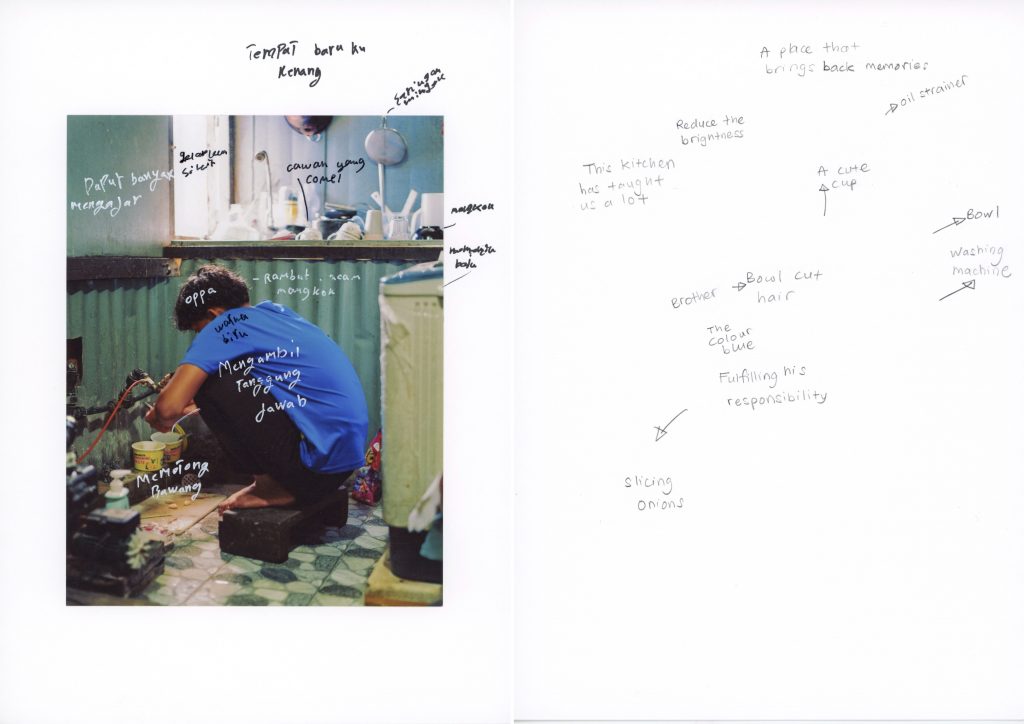 TemPaT baru ku
Kenang
Saringan
minyak
sikit
DaPur banyak
mengajar
cawan yang
comel
mangkok
baju
oppa
- Rambut
mangkok
warna
biru
Mengambil
Tanggung
Jawab
MeMoTong
Bawang
A place that
brings back memories
oil strainer
Reduce the
brightness
This kitchen
has taught
us a lot
A cute
cup
Bowl
Washing
machine
Brother
Bowl cut
hair
The
colour
blue
Fulfilling his
responsibility
Slicing
Onions